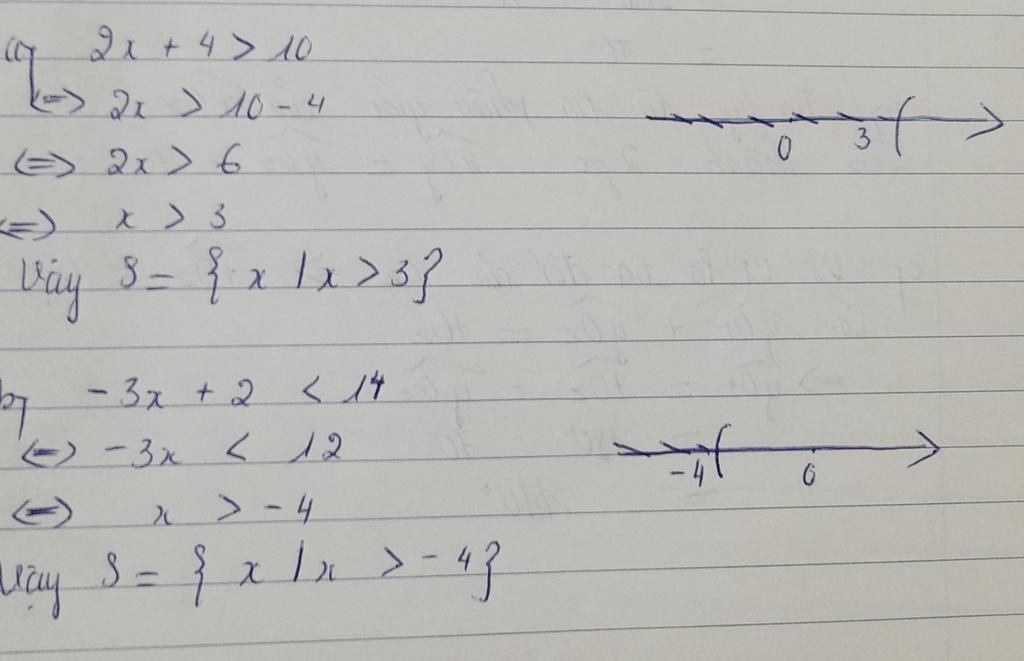 a) 2x + 4 > 10
<=> 2x > 10 - 4
0 3
<=> 2x > 6
<=> x > 3
Vậy S = { x | x > 3 }
b) -3x + 2 < 14
<=> -3x < 12
-4 0
<=> x > -4
Vậy S = { x | x > -4 }